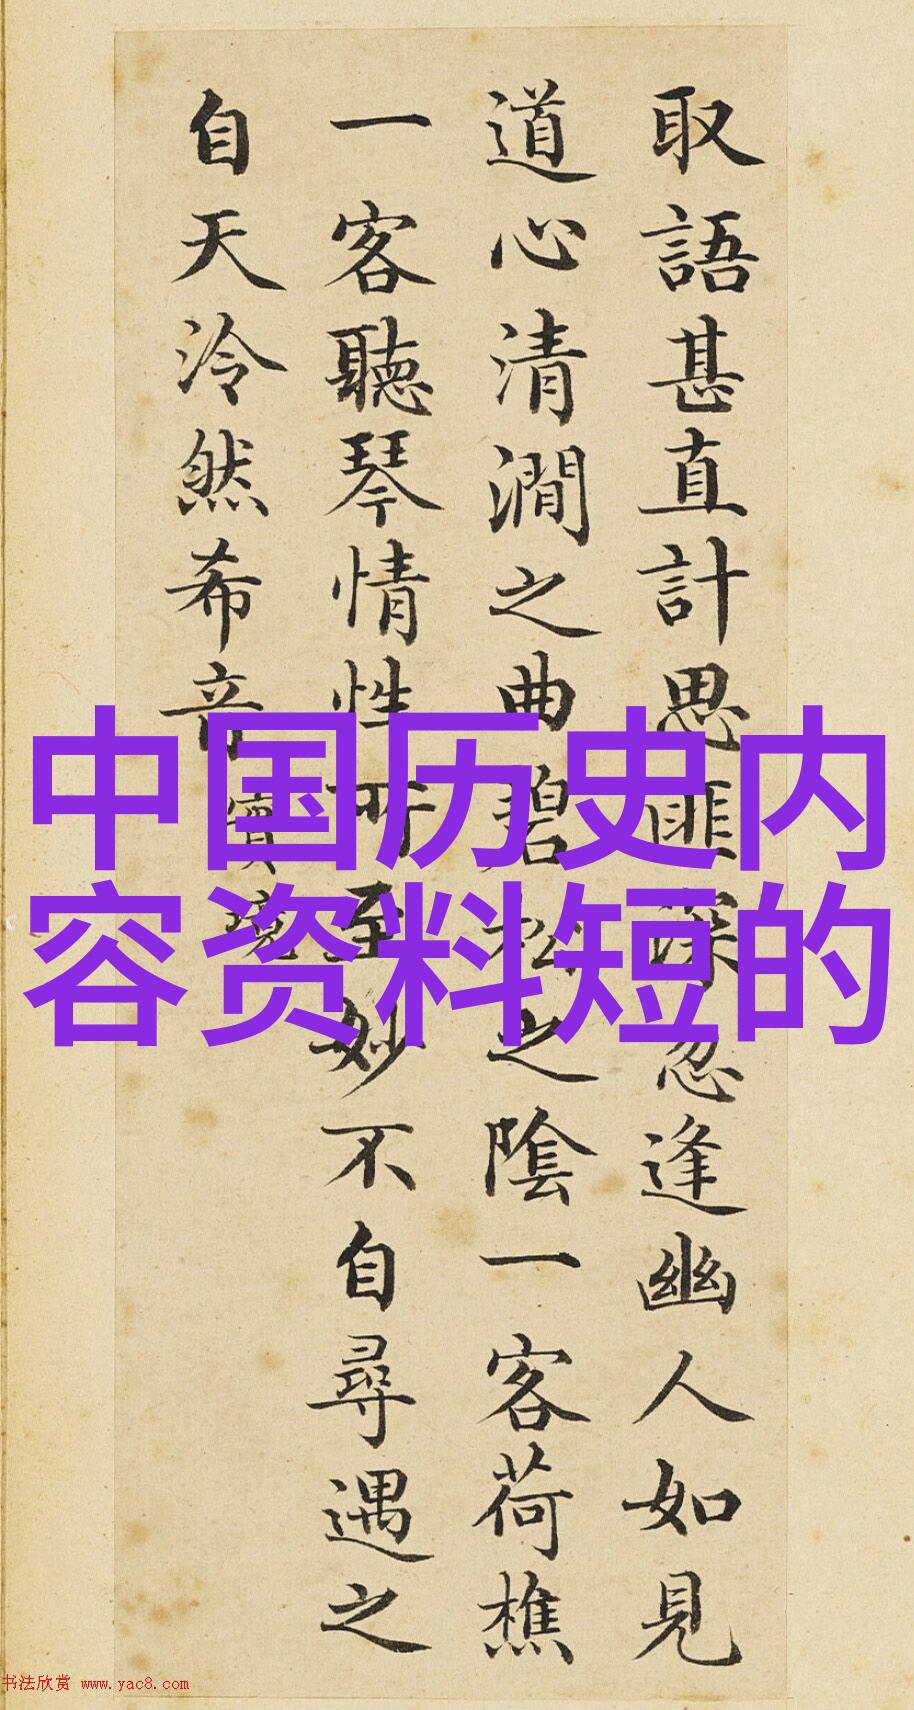 取語甚直計思匪深忽逢幽人如見
道心清澗之曲碧松之陰一客荷樵
一客聽琴情性所至妙不自尋遇之
自天泠然希音
實境
中国历史内
容资料短的
书法欣赏 www.yac8.com